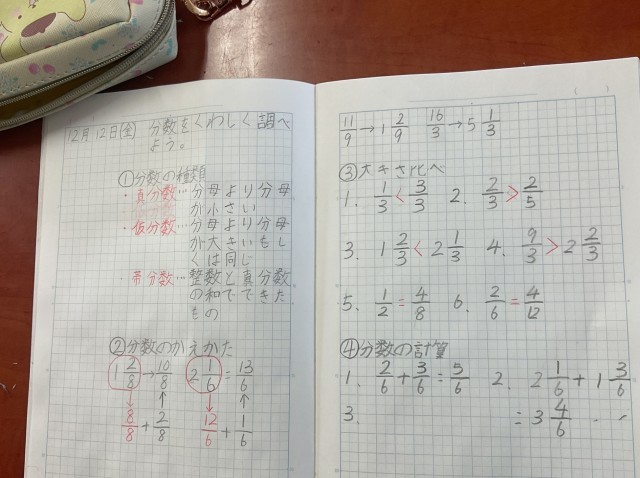 12月12日(金) 分数をくわしく調べ
よう。
①分数の種類
・真分数…分母より分母
が小さい
・仮分数…分母より分母
が大きいもし
くは同じ
・帯分数…整数と真分数
の和でできた
もの
②分数のかえかた
1 2/8 → 10/8 2 1/6 = 13/6
↓ ↑ ↓ ↑
8/8 + 2/8 12/6 + 1/6
11/9 → 1 2/9 16/3 → 5 1/3
③大きさ比べ
1. 1/3 < 3/3 2. 2/3 > 2/5
3. 1 2/3 < 2 1/3 4. 9/3 > 2 2/3
5. 1/2 = 4/8 6. 2/6 = 4/12
④分数の計算
1. 2/6 + 3/6 = 5/6 2. 2 1/6 + 1 3/6
3. = 3 4/6